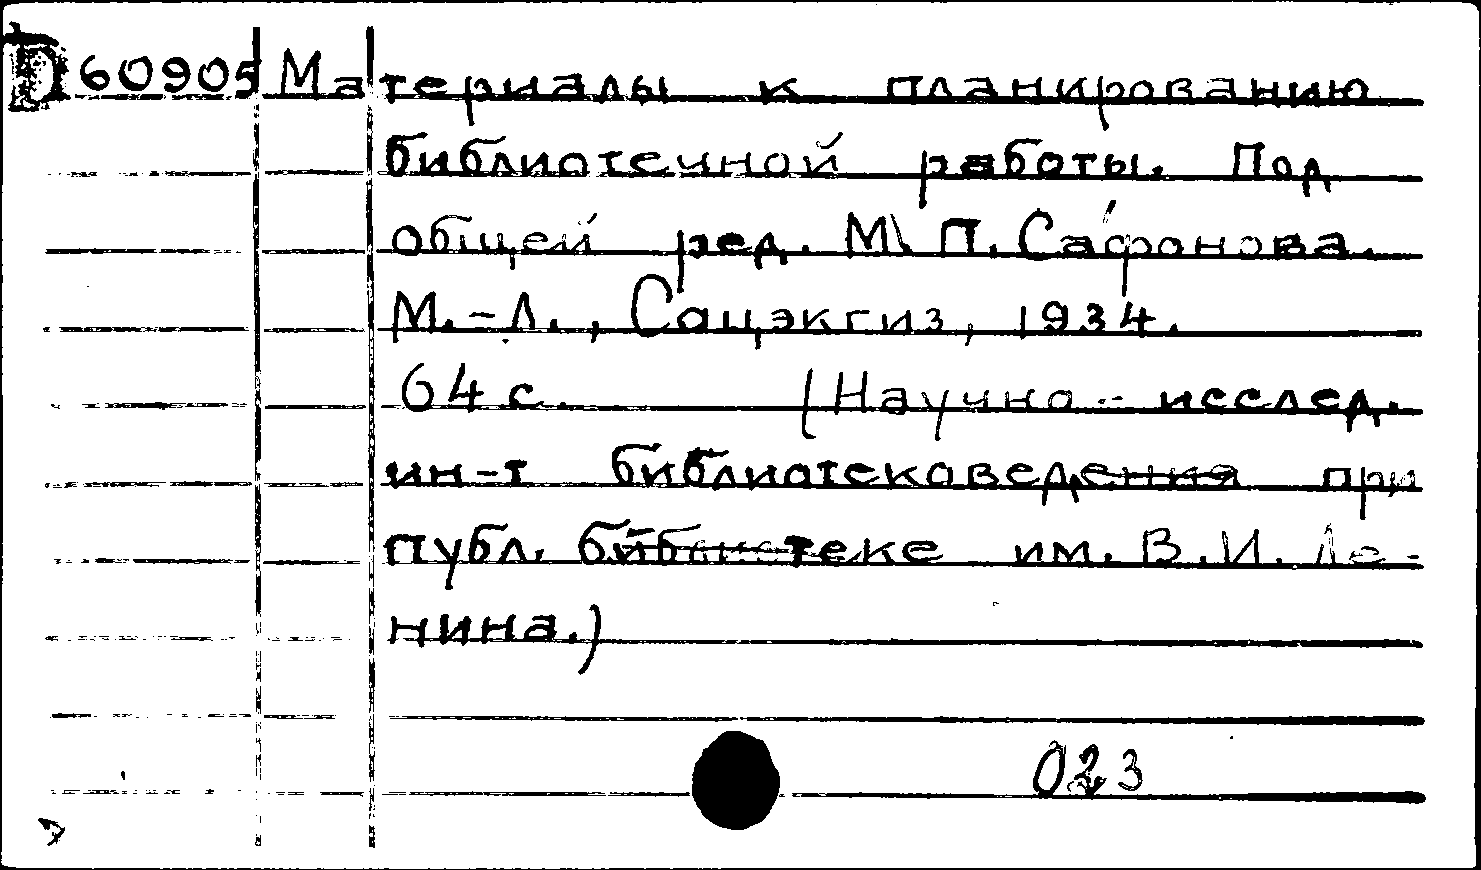 D 60905 Материалы к планированию
библиотечной работы. Под
общей ред. М. П. Сафонова.
М.-Л., Соцэкгиз, 1934.
64 с. (Научно-исслед.
ин-т библиотековедения при
публ. библиотеке им. В.И. Ле-
нина.)
023